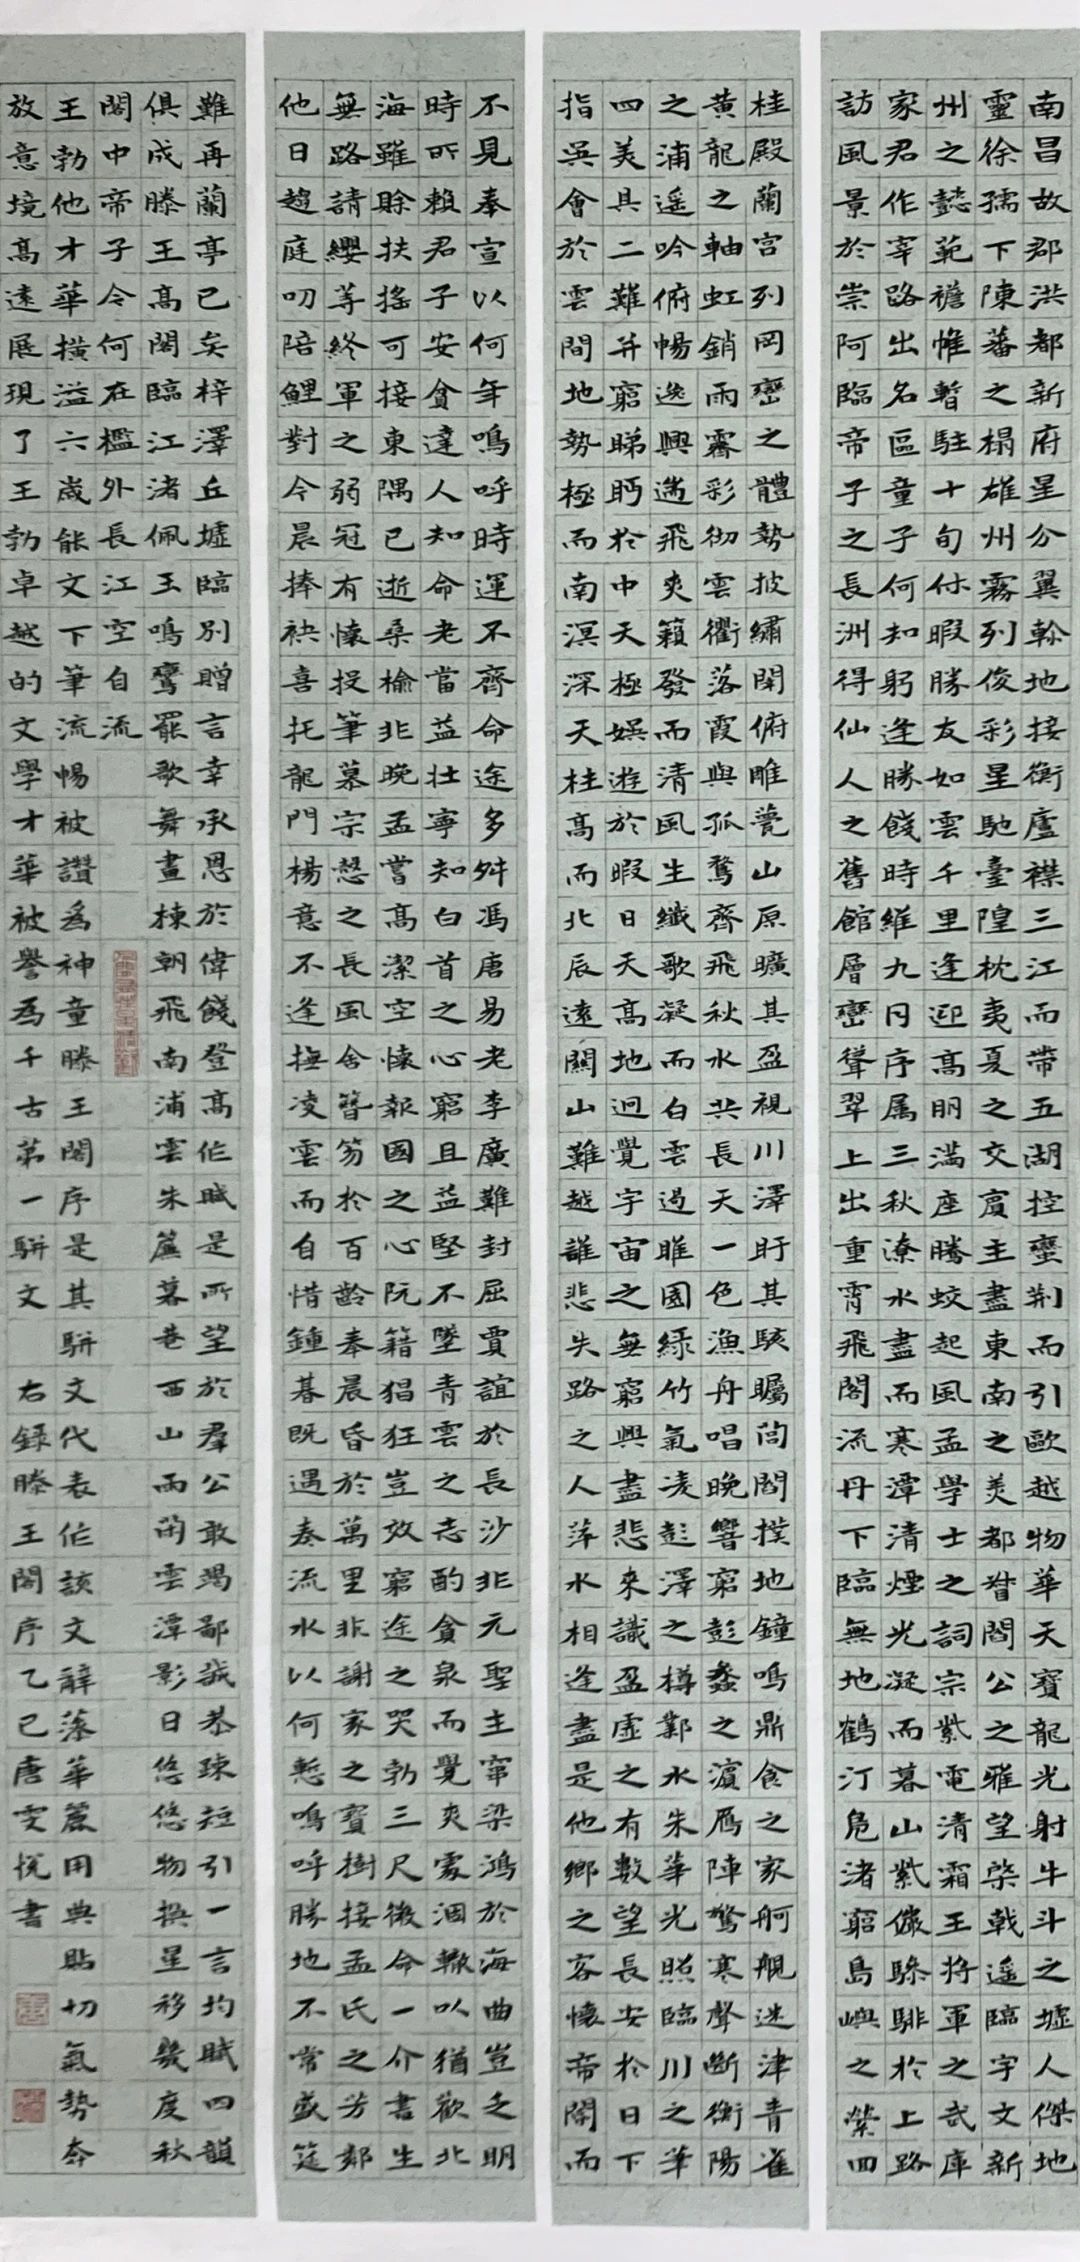 南昌故郡洪都新府星分翼軫地接衡廬襟三江而帶五湖控蠻荆而引歐越物華天寶龍光射牛斗之墟人傑地
靈徐孺下陳蕃之榻雄州霧列俊彩星馳臺隍枕夷夏之交賓主盡東南之美都督閻公之雅望棨戟遥臨宇文新
州之懿範襜帷暫駐十旬休暇勝友如雲千里逢迎高朋滿座騰蛟起風孟學士之詞宗紫電清霜王將軍之武庫
家君作宰路出名區童子何知躬逢勝餞時維九月序属三秋潦水盡而寒潭清煙光凝而暮山紫儼驂騑於上路
訪風景於崇阿臨帝子之長洲得仙人之舊館層巒聳翠上出重霄飛閣流丹下臨無地鶴汀凫渚窮島嶼之縈四
桂殿蘭宮列岡巒之體勢披繡闥俯雕甍山原曠其盈視川澤盱其駭矚閭閻撲地鐘鳴鼎食之家舸艦迷津青雀
黄龍之軸虹銷雨霽彩徹雲衢落霞與孤鶩齊飛秋水共長天一色漁舟唱晚響窮彭蠡之濱雁陣驚寒聲斷衡陽
之浦遥吟俯暢逸興遄飛爽籟發而清風生纖歌凝而白雲遏睢園緑竹氣凌彭澤之樽鄴水朱華光照臨川之筆
四美具二難并窮睇眄於中天極娛遊於暇日天高地迥覺宇宙之無窮興盡悲來識盈虛之有數望長安於日下
指吳會於雲間地勢極而南溟深天柱高而北辰遠關山難越誰悲失路之人萍水相逢盡是他鄉之客懷帝閽而
不見奉宣以何年鳴呼時運不齊命途多舛馮唐易老李廣難封屈賈誼於長沙非元聖主竄梁鴻於海曲豈乏明
時所賴君子安貧達人知命老當益壯寧知白首之心窮且益堅不墜青雲之志酌貪泉而覺爽處涸轍以猶歡北
海雖賒扶搖可接東隅已逝桑榆非晚孟嘗高潔空懷報國之心阮籍猖狂豈效窮途之哭勃三尺微命一介書生
無路請纓等終軍之弱冠有懷投筆慕宗愨之長風舍簪笏於百齡奉晨昏於萬里非謝家之寶樹接孟氏之芳鄰
他日趨庭叨陪鯉對今晨捧袂喜托龍門楊意不逢撫凌雲而自惜鍾期既遇奏流水以何慙鳴呼勝地不常盛筵
難再蘭亭已矣梓澤丘墟臨別贈言幸承恩於偉餞登高作賦是所望於群公敢竭鄙誠恭疎短引一言均賦四韻
俱成滕王高閣臨江渚佩玉鳴鸞罷歌舞畫棟朝飛南浦雲朱簾暮卷西山雨閑雲潭影日悠悠物换星移幾度秋
閣中帝子今何在檻外長江空自流
王勃他才華横溢六歲能文下筆流暢被讚為神童滕王閣序是其駢文代表作該文辭藻華麗用典貼切氣勢奔
放意境高遠展現了王勃卓越的文學才華被譽為千古第一駢文 右錄滕王閣序乙巳唐雯悅書